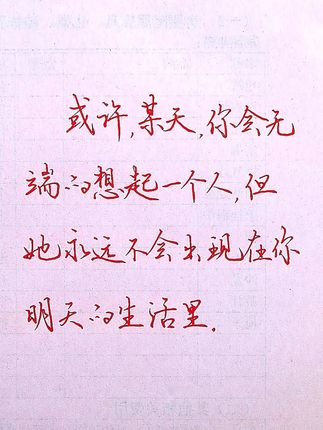 或许,某天,你会无
端的想起一个人,但
她永远不会出现在你
明天的生活里.